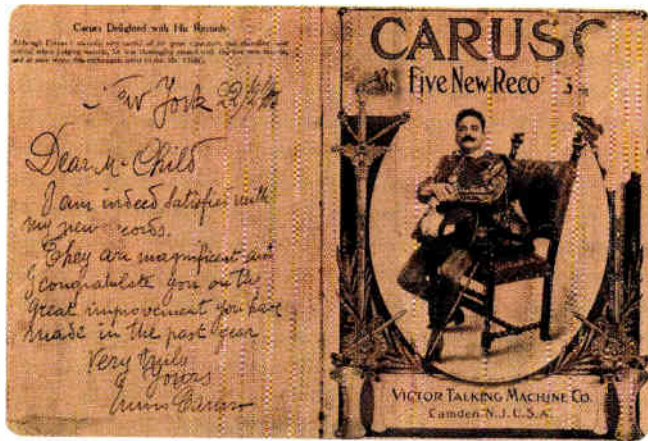 Caruso Delighted with His Records
New York 22/2/05
Dear Mr Child
I am indeed satisfied with
my new records.
They are magnificent and
I congratulate you on the
great improvement you have
made in the past year
Very truly
Yours
Enrico Caruso
CARUSO
Five New Reco
VICTOR TALKING MACHINE CO.
Camden N.J. U.S.A.